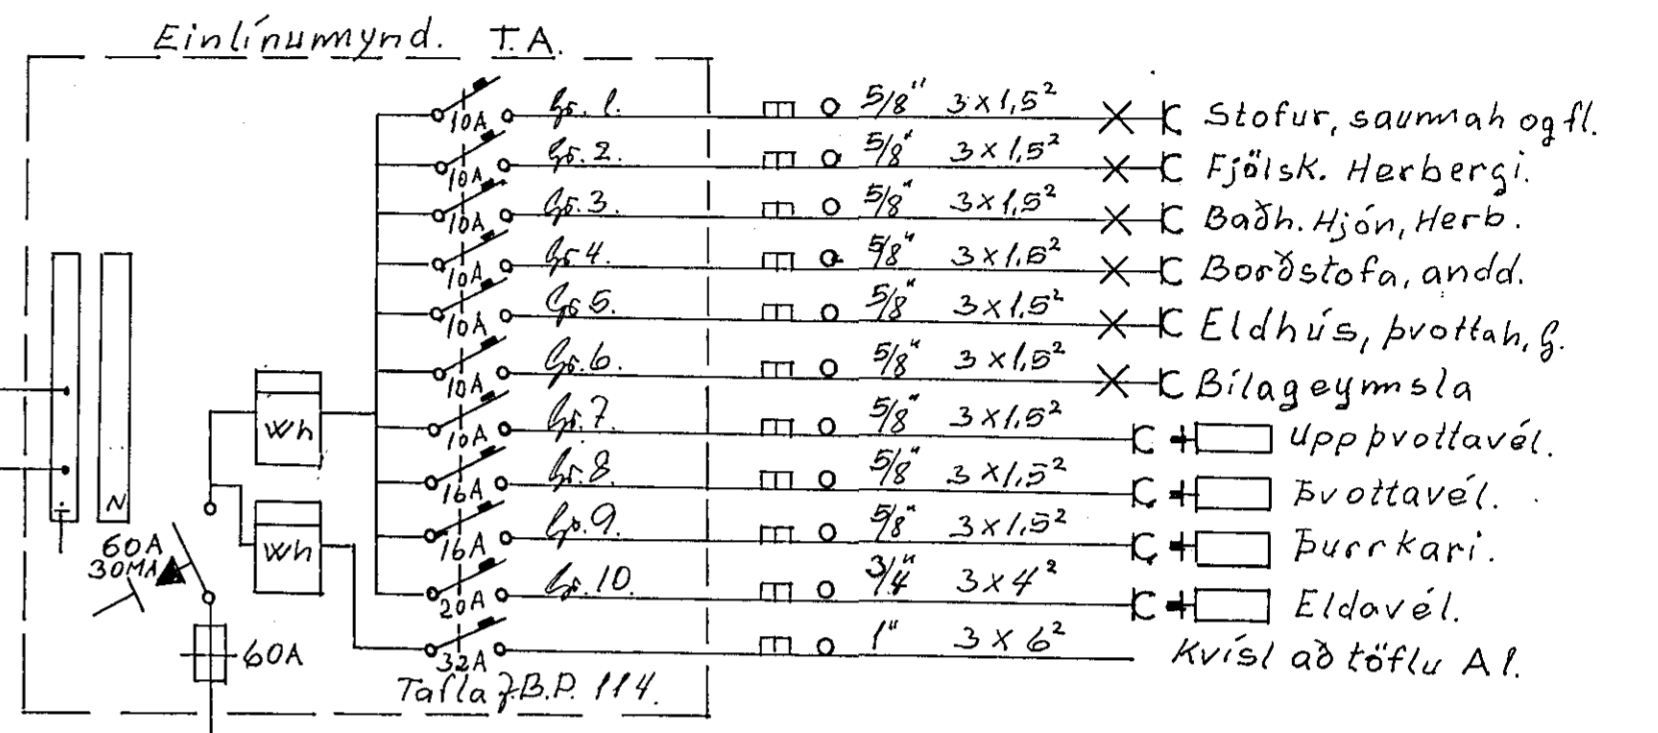 Einlínumynd. T.A.
10A Gr. 1. 5/8" 3x1,5² Stofur, saumah og fl.
10A Gr. 2. 5/8" 3x1,5² Fjölsk. Herbergi.
10A Gr. 3. 5/8" 3x1,5² Baðh. Hjón, Herb.
10A Gr. 4. 5/8" 3x1,5² Borðstofa, andd.
10A Gr. 5. 5/8" 3x1,5² Eldhús, þvottah, G.
10A Gr. 6. 5/8" 3x1,5² Bílageymsla
10A Gr. 7. 5/8" 3x1,5² Uppþvottavél.
16A Gr. 8 5/8" 3x1,5² Þvottavél.
16A Gr. 9. 5/8" 3x1,5² Þurrkari.
20A Gr. 10. 3/4" 3x4² Eldavél.
32A 1" 3x6² Kvísl að töflu A1.
Wh
Wh
N
60A
30MA
60A
Tafla B.P. 114.